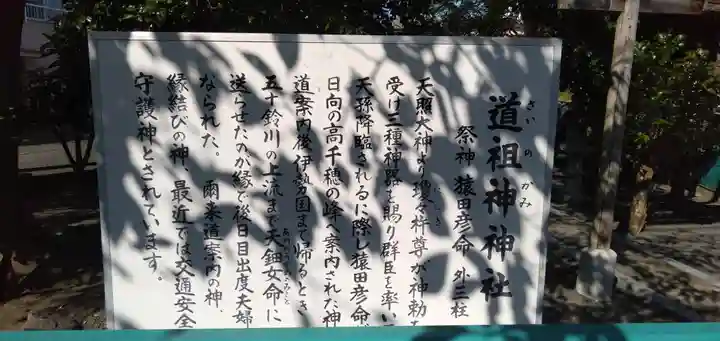 さいのかみ
道祖神神社
祭神 猿田彦命 外三柱
天照大神より瓊々杵尊が神勅を
受け三種神器を賜り群臣を率い
天孫降臨されるに際し猿田彦命が
日向の高千穂の峰へ案内された神
道案内後伊勢国まで帰るとき
五十鈴川の上流まで天鈿女命に
送らせたのが縁で後日目出度夫婦
なられた。 爾来道案内の神、
縁結びの神、最近では交通安全
守護神とされています。